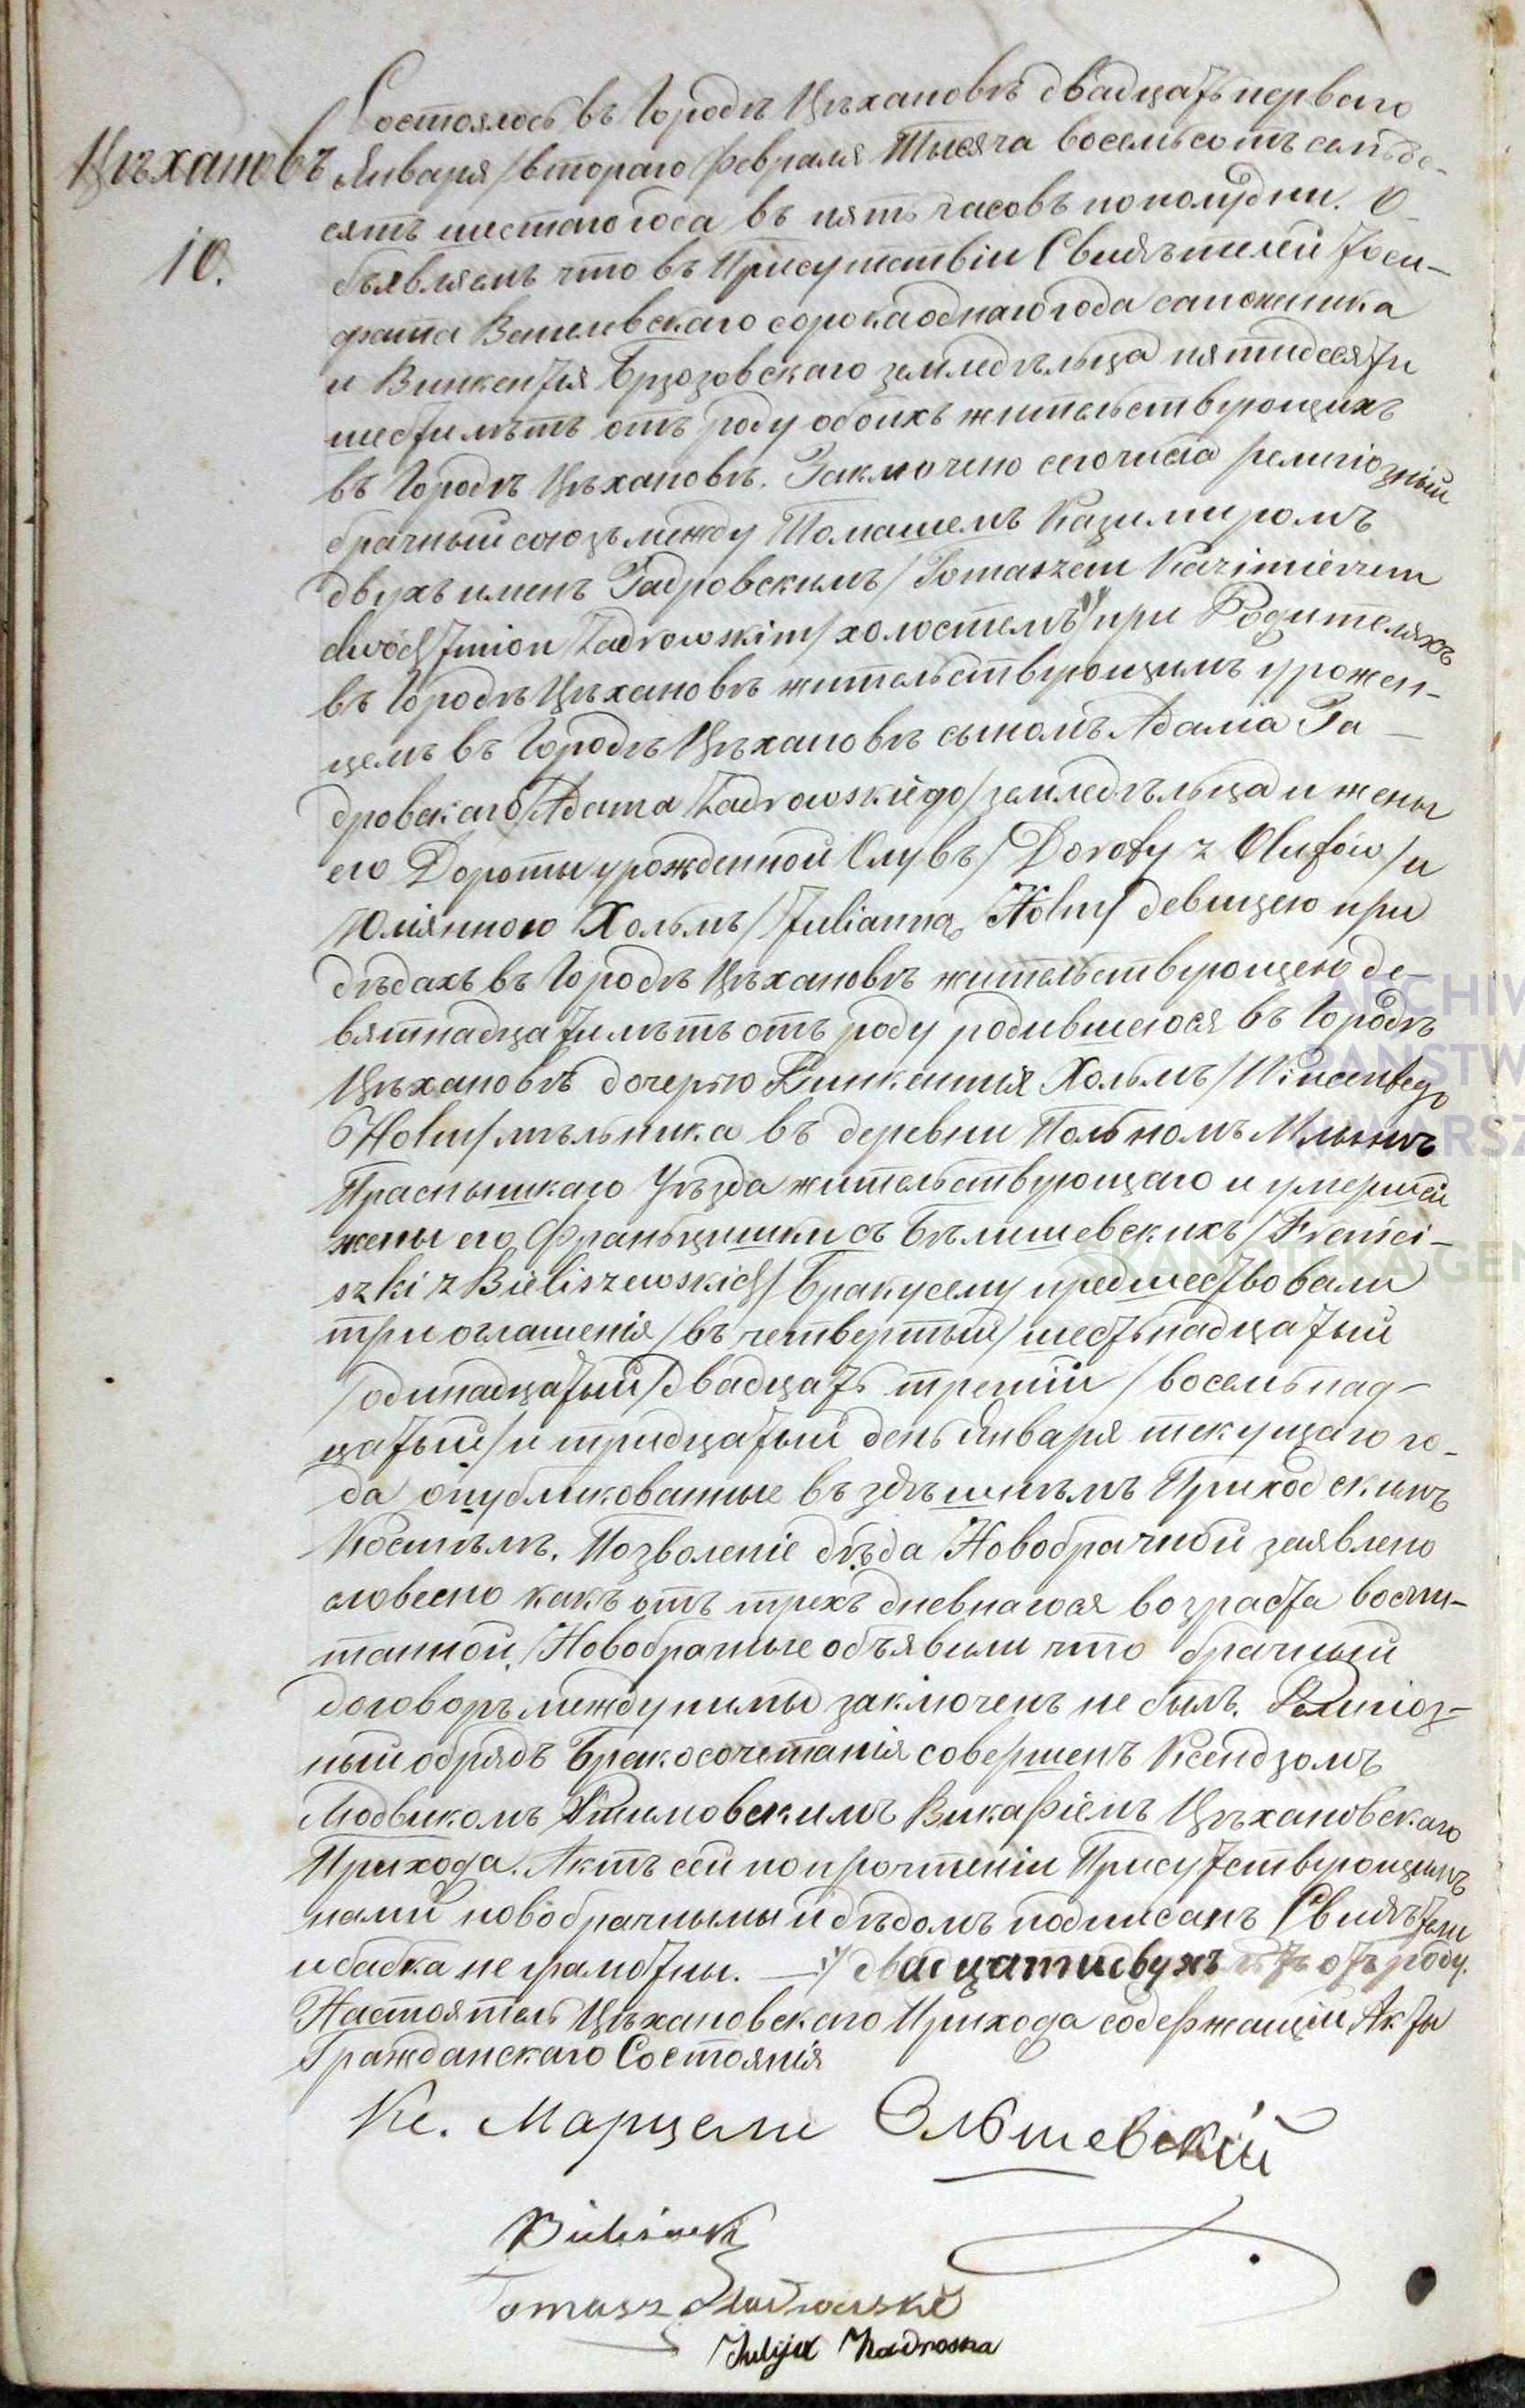 Цѣхановъ
10.
Состоялось въ Городѣ Цѣхановѣ двадцать перваго
Января/втораго Февраля Тысяча восемьсотъ семьде-
сятъ шестаго года въ пять часовъ пополудни. О-
бъявляемъ что въ Присутствіи Свидѣтелей Іоси-
фата Василевскаго сорока однаго года сапожника
и Винкентія Брзозовскаго земледѣльца пятидесяти
шести лѣтъ отъ роду обоихъ жительствующихъ
въ Городѣ Цѣхановѣ. Заключено сего числа религіозный
брачный союзъ между Томашемъ Казимиромъ
двухъ именъ Задровскимъ/Tomaszem Kazimierzem
dwóch Imion Zadrowskim/холостемъ при Родителяхъ
въ Городѣ Цѣхановѣ жительствующимъ урожен-
цемъ въ Городѣ Цѣхановѣ сыномъ Адама За-
дровскаго/Adama Zadrowskiego/земледѣльца и жены
его Дороты урожденной Олувъ/Doroty z Olufów/и
Юліянною Хольмъ/Julianną Holm/девицею при
дѣдахъ въ Городѣ Цѣхановѣ жительствующею де-
вятнадцати лѣтъ отъ роду родившеюся въ Городѣ
Цѣхановѣ дочерью Винкентія Хольмъ/Wincentego
Holm/мѣльника въ деревни Польномъ Млынѣ
Праснышскаго Уѣзда жительствующаго и умершей
жены его Франьцишки съ Бѣлишевскихъ/Franci-
szki z Bieliszewskich/Браку сему предшествовали
три оглашенія/въ четвертый/шестьнадцатый
/одинадцатый/двадцать третій/восемьнад-
цатый/и тридцатый день Января текущаго го-
да опубликованные въ здѣшнѣмъ Приходскимъ
Костѣлѣ. Позволеніе дѣда Новобрачной заявлено
словесно какъ отъ трехъ дневнагося возраста воспи-
танной. Новобрачные объявили что брачный
договоръ между ними заключенъ не былъ. Религіоз-
ный обрядъ Бракосочетанія совершенъ Ксендзомъ
Людвикомъ Викаріемъ Цѣхановскаго
Прихода. Актъ сей по прочтеніи Присутствующимъ
нами новобрачными и дѣдомъ подписанъ Свидѣтели
и бабка не грамотны. — двадцати двухъ лѣтъ отъ роду.
Настоятель Цѣхановскаго Прихода содержащій Акты
Гражданскаго Состоянія
Кс. Марцели Ольшевскій
Tomasz Zadrowski
Julija